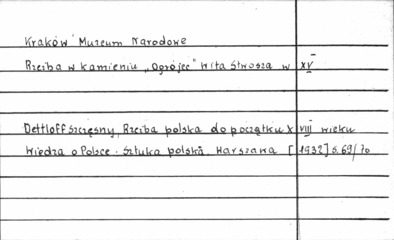 Kraków Muzeum Narodowe
Rzeźba w kamieniu „Ogrójec" Wita Stwosza w XV
Dettloff Szczęsny, Rzeźba polska do początku XVIII wieku
Wiedza o Polsce. Sztuka polska. Warszawa [1932] s. 69/70